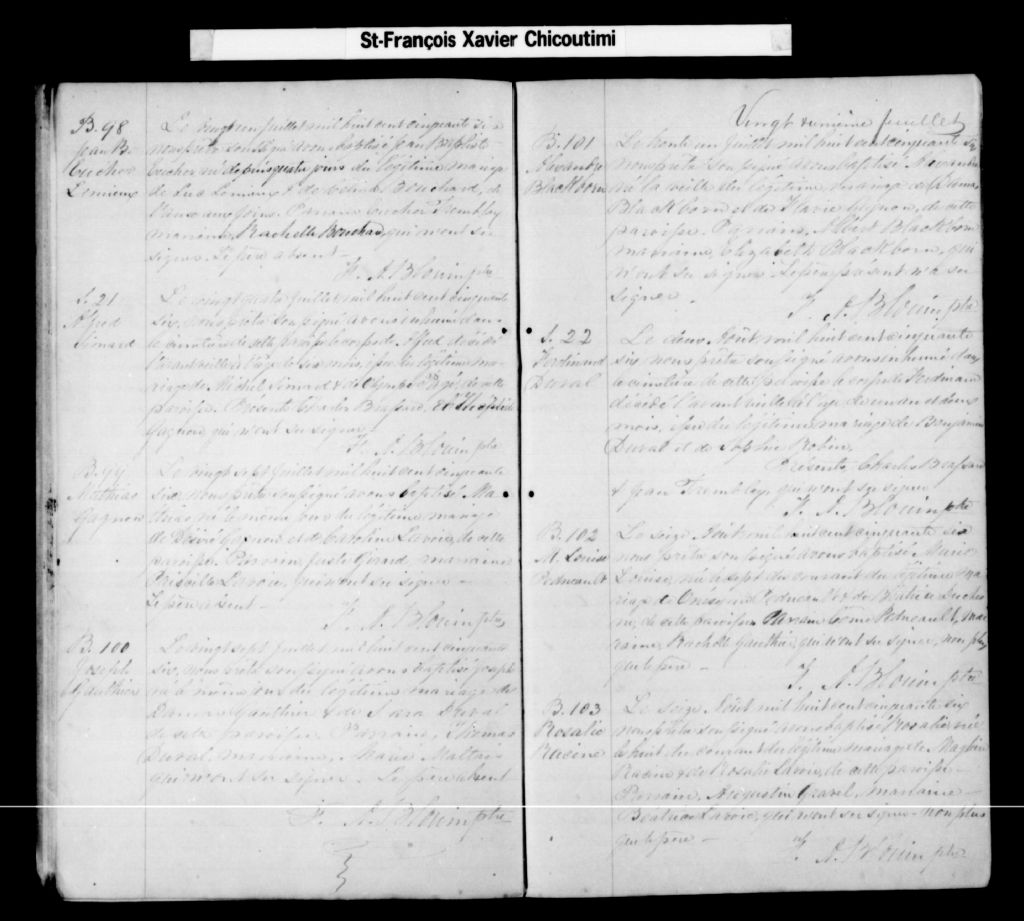 St-François Xavier Chicoutimi
B. 98
Jean B.
Eucher
Lemieux
Le vingt un Juillet mil huit cent cinquante six
nous prêtre soussigné avons baptisé Jean Baptiste
Eucher né depuis quatre jours du légitime mariage
de Luc Lemieux & de Bouchard, de
Parrain Eucher Tremblay
marraine Rachelle Bouchard qui n'ont su
signer. Le père absent -
F. A. Blouin ptre
S. 21
Alfred
Simard
Le vingt quatre Juillet mil huit cent cinquante
six, nous prêtre soussigné avons inhumé dans
le cimetière de cette paroisse le corps de Alfred décédé
l'avant veille à l'âge de six mois, fils du légitime ma-
riage de Michel Simard & de Pagé de cette
paroisse. Présents Charles Brassard, et Théophile
Gagnon, qui n'ont su signer.
F. A. Blouin ptre
B. 99
Mathias
Gagnon
Le vingt sept Juillet mil huit cent cinquante
six, nous prêtre soussigné avons baptisé Ma-
thias né le même jour du légitime mariage
de David Gagnon et de Caroline Lavoie, de cette
paroisse. Parrain, Juste Girard, marraine
Priscille Lavoie, qui n'ont su signer -
Le père absent -
F. A. Blouin ptre
B. 100
Joseph
Gauthier
Le vingt sept Juillet mil huit cent cinquante
six, nous prêtre soussigné avons baptisé Joseph
né le même jour du légitime mariage de
Damas Gauthier & de Sara Duval
de cette paroisse. Parrain, Thomas
Duval, marraine, Marie Maltais
qui n'ont su signer. Le père absent
F. A. Blouin ptre
Vingt & unième feuillet
B. 101
Alexandre
Blackborn
Le trente un Juillet mil huit cent cinquante six
nous prêtre soussigné avons baptisé Alexandre
né la veille du légitime mariage de Damas
Blackborn et de Flavie Gagnon, de cette
paroisse. Parrain, Albert Blackborn
marraine, Elizabeth Blackborn, qui
n'ont su signer. Le père présent n'a su
signer.
F. A. Blouin ptre
S. 22
Ferdinand
Duval
Le deux Août mil huit cent cinquante
six nous prêtre soussigné avons inhumé dans
le cimetière de cette paroisse le corps de Ferdinand
décédé l'avant veille à l'âge de un an et deux
mois, fils du légitime mariage de Benjamin
Duval et de Sophie Robin.
Présents Charles Brassard
& Jean Tremblay qui n'ont su signer
F. A. Blouin ptre
B. 102
M. Louise
Pedneault
Le seize Août mil huit cent cinquante six
nous prêtre soussigné avons baptisé Marie
Louise, née le sept du courant du légitime ma-
riage de Onésime Pedneault & de Béatrice Duches-
ne, de cette paroisse. Parrain Côme Pedneault, mar-
raine, Rachelle Gauthier, qui n'ont su signer, non plus
que le père -
F. A. Blouin ptre
B. 103
Rosalie
Racine
Le seize Août mil huit cent cinquante six
nous prêtre soussigné avons baptisé Rosalie née
le huit du courant du légitime mariage de
Racine & de Rosalie Lavoie, de cette paroisse -
Parrain, Augustin Gravel, marraine -
Lavoie, qui n'ont su signer non plus
que le père -
F. A. Blouin ptre